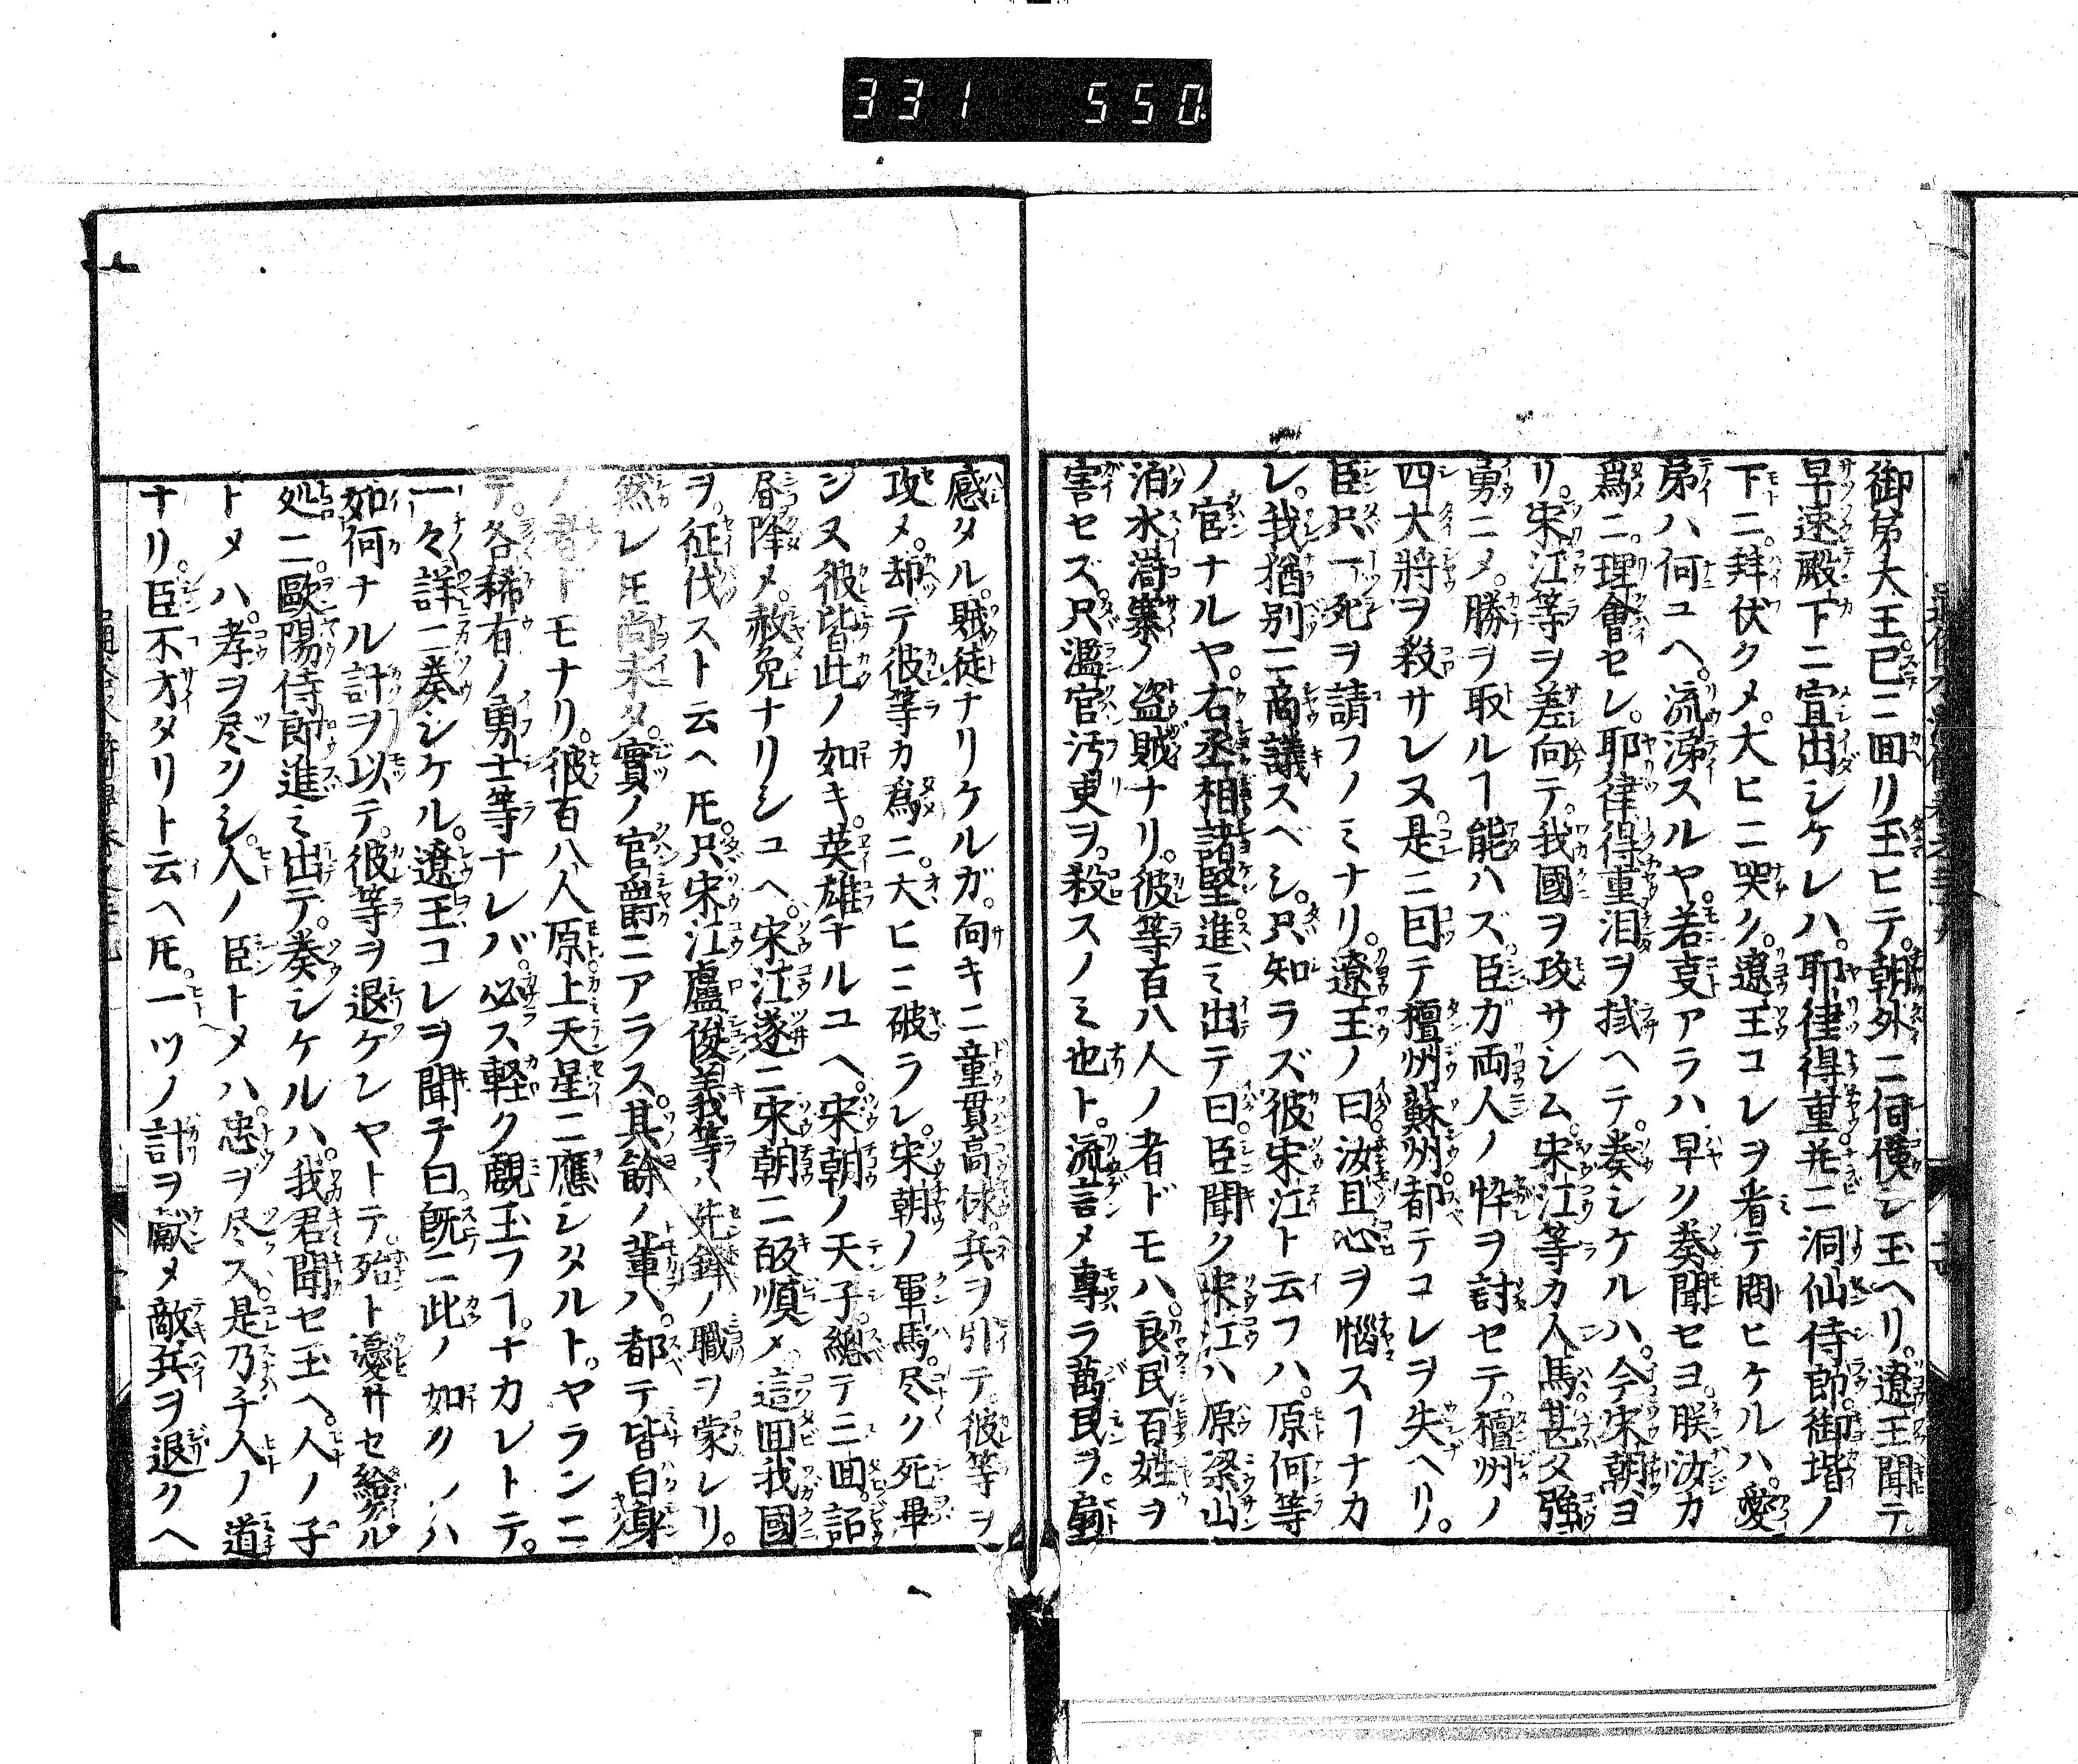 331 550
御弟大王已ニ回リ玉ヒテ。朝外ニ伺候シ玉ヘリ。遼王聞テ
早速殿下ニ宣出シケレハ。耶律得重并ニ洞仙侍郎。御堦ノ
下ニ。拜伏クメ。大ヒニ哭ク。遼王コレヲ看テ問ヒケルハ。愛
弟ハ何ユヘ。流涕スルヤ。若叓アラハ早ク奏聞セヨ。朕汝カ
爲ニ。理會セレ。耶律得重泪ヲ拭ヘテ。奏シケルハ。今宋朝ヨ
リ。宋江等ヲ差向テ。我國ヲ攻サシム。宋江等カ人馬。甚タ強
勇ニメ。勝ヲ取ルヿ能ハズ。臣ガ両人ノ忰ヲ討セテ。檀州ノ
四大將ヲ殺サレヌ。是ニ囙テ檀州蘇州。都テコレヲ失ヘリ。
臣只一死ヲ請フノミナリ。遼王ノ曰。汝且心ヲ惱スヿナカ
レ。我猶別ニ商議スベシ。只知ラズ彼宋江ト云フハ。原何等
ノ官ナルヤ。右丞相諸堅進ミ出テ曰。臣聞ク宋江ハ原梁山
泊水滸寨ノ盗賊ナリ。彼等百八人ノ者ドモハ。良民百姓ヲ
害セズ。只濫官汚吏ヲ。殺スノミ也ト。流言メ專ラ萬民ヲ。
感タル。賊徒ナリケルガ。向キニ童貫高俅。兵ヲ引テ。彼等ヲ
攻メ。却テ彼等カ爲ニ。大ヒニ破ラレ。宋朝ノ軍馬。尽ク死畢
ンヌ彼皆此ノ如キ。英雄チルユヘ。宋朝ノ天子總テ三回。詔
メ。赦免ナリシユヘ。宋江遂ニ宋朝ニ皈順メ這回我國
ヲ。征伐スト云ヘ𪜈。只宋江盧俊義等ハ先鋒ノ職ヲ蒙レリ。
然レ𪜈尚未タ。實ノ官爵ニアラス。其餘ノ輩ハ。都テ皆白身
ノ者ドモナリ。彼百八人原上天星ニ應シタルト。ヤランニ
テ。各稀有ノ勇士等ナレバ。必ス軽ク覰玉フヿ。ナカレトテ。
一々詳ニ奏シケル。遼王コレヲ聞テ曰。既ニ此ノ如クノハ
如何ナル計ヲ以テ。彼等ヲ退ケレヤトテ。殆ト憂サセ給ケル
処ニ。歐陽侍郎進ミ出テ。奏シケルハ。我君聞セ玉ヘ。人ノ子
トメハ。孝ヲ尽クシ。人ノ臣トメハ忠ヲ尽ス。是乃チ人ノ道
ナリ。臣不才タリト云ヘ𪜈。一ツノ計ヲ獻メ敵兵ヲ退クヘ